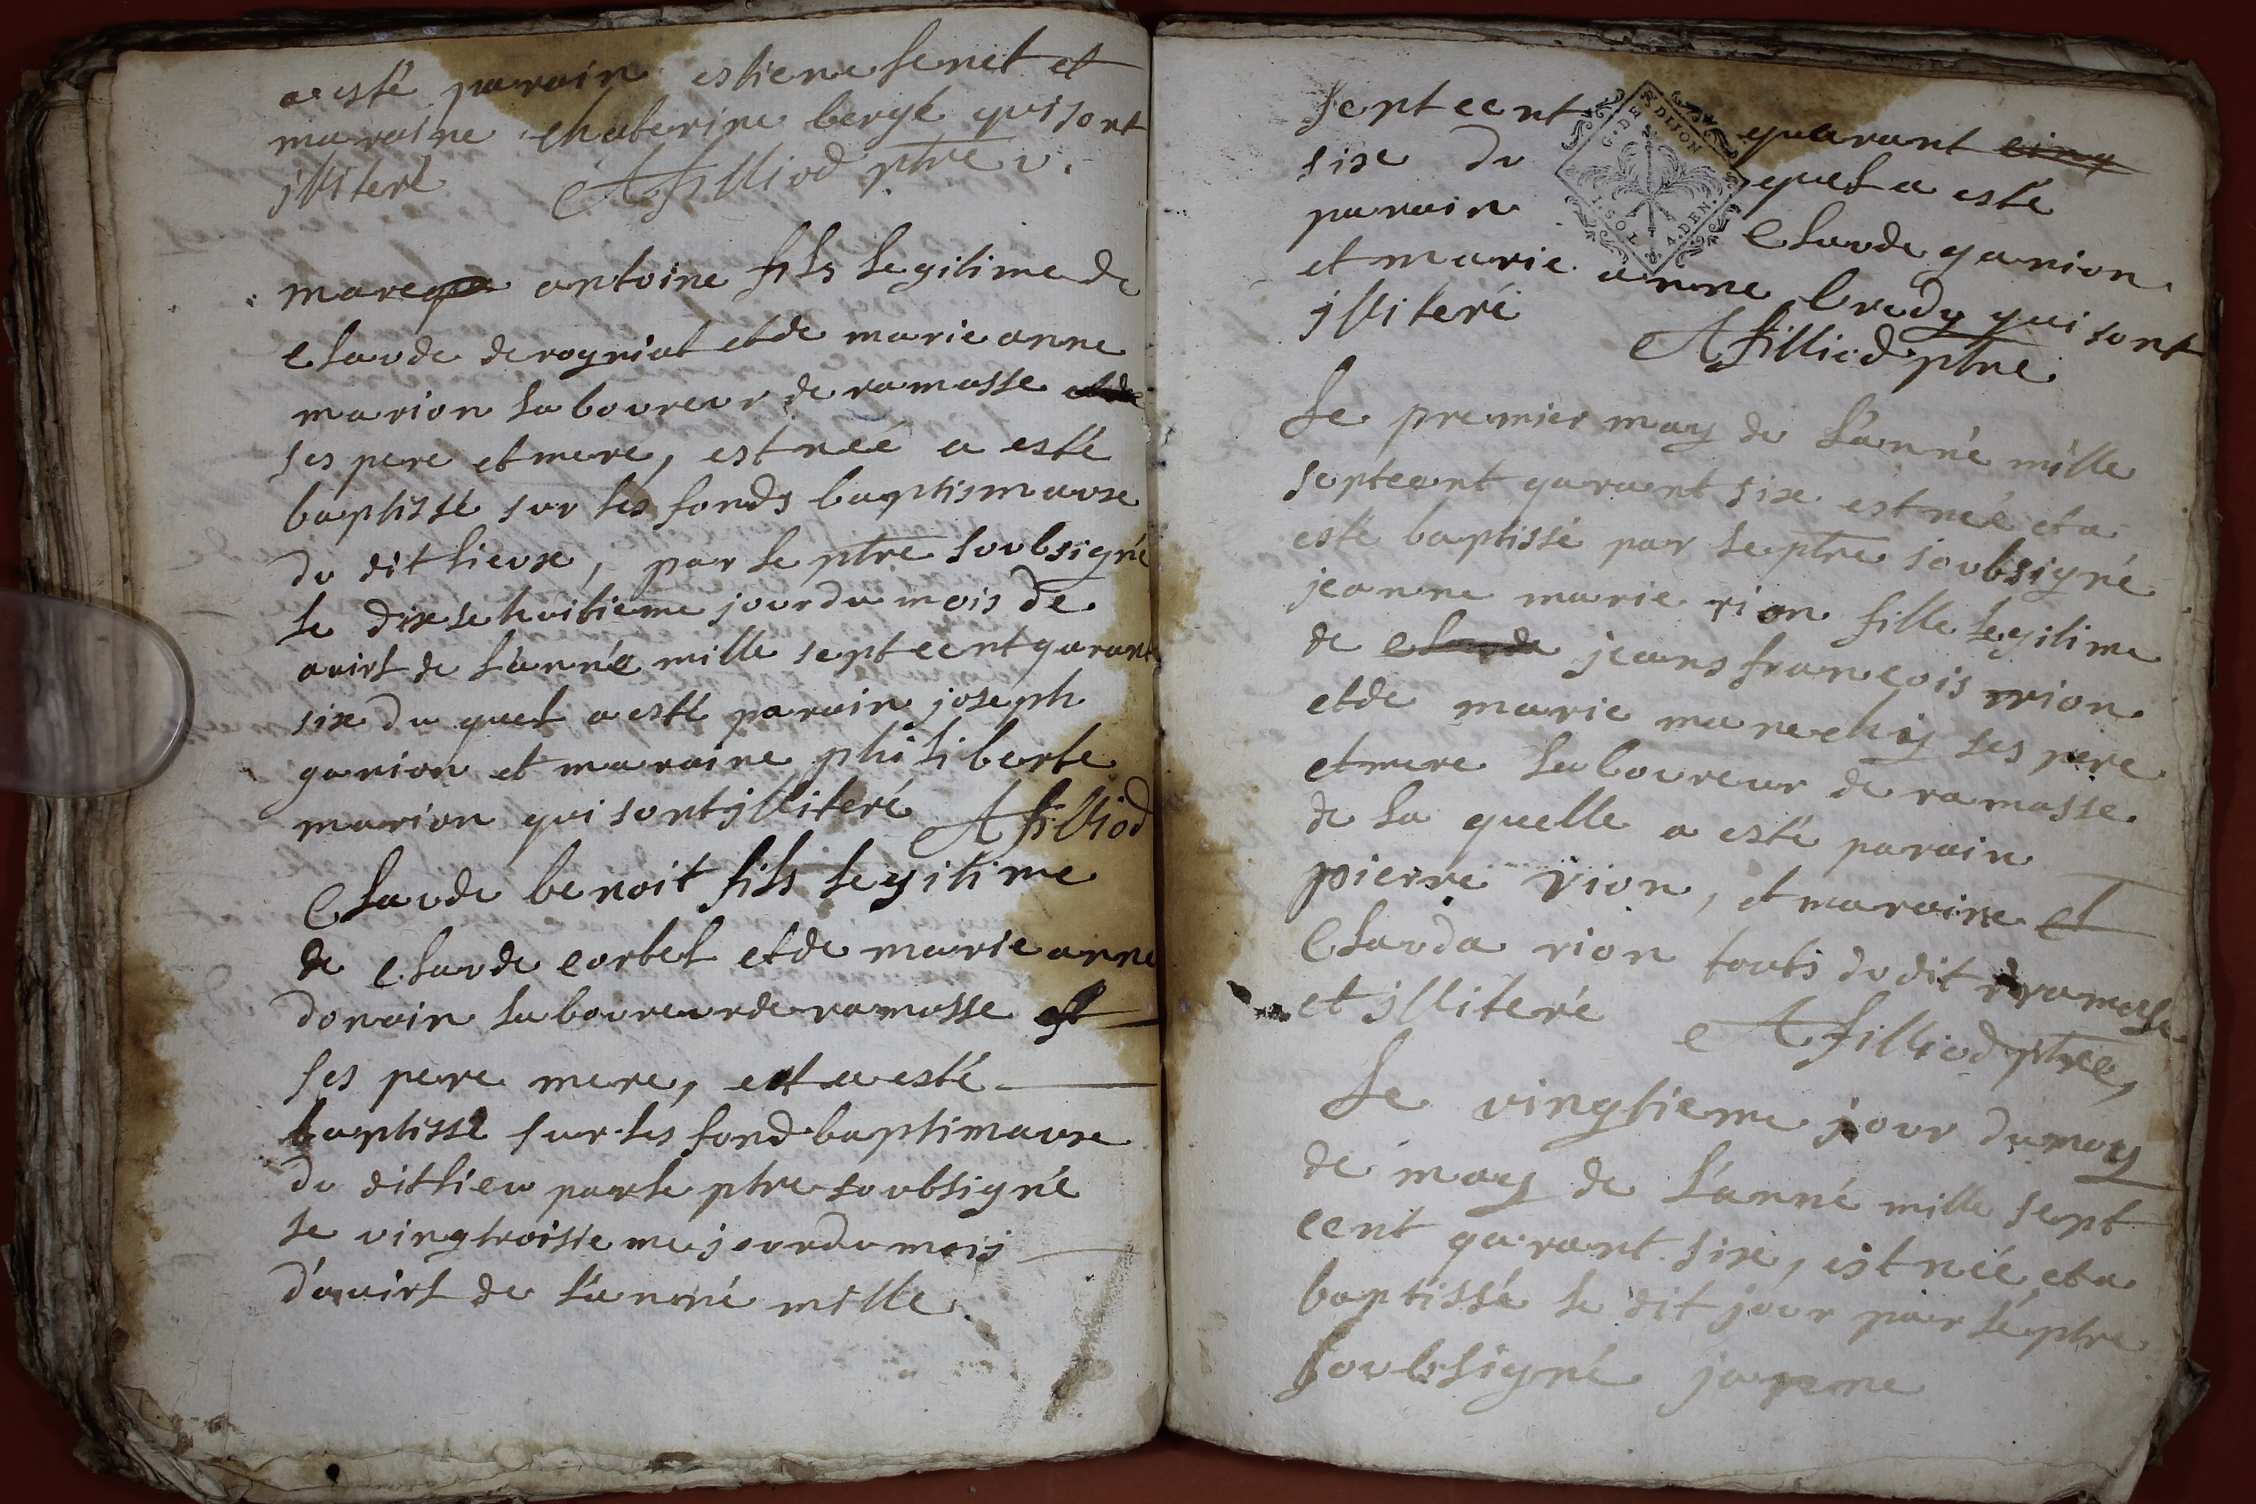 a esté parain estiene senet et
maraine chaterine bergé qui sont
jlliteré A filliod ptre v.
mareq antoine fils legitime de
claude derogniat et de marie anne
marion laboureur de ramasse et de
ses pere et mere, est neé a esté
baptissé sur les fonds baptismaux
du dit lieux, par le ptre soubsigné
le dixe huitieme jour du mois de
avirl de l'anné mille sept cent garant
six du quel a esté parain joseph
garion et maraine philiberte
marion qui sont jlliteré A filliod
Claude benoit fils legitime
de claude corbet et de marie anne
donain laboureur de ramasse
ses pere mere, et a esté
baptissé sur les fond baptimaux
du dit lieu par le ptre soubsigné
le vingtroisieme jour du mois
d'avirl de l'anné mille
sept cent quarant cinq
six du quel a esté
parain Claude garion
et marie anne bredy qui sont
jlliteré A filliod ptre
G. DE DIJON
1. SOL 4. DEN.
Le premier may de l'anné mille
septcent garant six est neé et a
esté baptissé par le ptre soubsigné
jeanne marie rion fille legitime
de claude jeans francois rion
et de marie marechig ses pere
et mere laboureur de ramasse
de la quelle a esté parain
pierre rion, et maraine et
Clauda rion touts du dit ramasse
et jlliteré A filliod ptre,
Le vingtieme jour du moy
de may de l'anné mille sept
cent garant six, est neé et a
baptissé le dit jour par le ptre
soubsigné